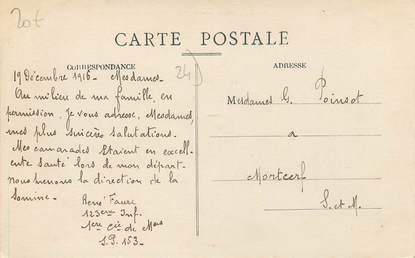 20t
CARTE POSTALE
CORRESPONDANCE
ADRESSE
19 Décembre 1916 - Mesdames.
Au milieu de ma famille, en
permission, Je vous adresse, Mesdames,
mes plus sincères salutations.
Mes camarades étaient en excell-
ente santé lors de mon départ-
nous prenons la direction de la
Somme.
René Faure
123ème Inf.
1ere Cie de Mses
S.P. 153-
Mesdames G. Poinsot
a
Mortcerf
S. et M.